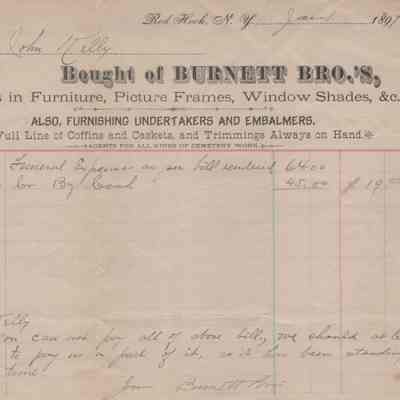 Red Hook, N. Y. Jan 1 189
John Kelly
Bought of BURNETT BRO.'S,
s in Furniture, Picture Frames, Window Shades, &c.
ALSO, FURNISHING UNDERTAKERS AND EMBALMERS.
Full Line of Coffins and Caskets, and Trimmings Always on Hand
AGENTS FOR ALL KINDS OF CEMETERY WORK.
Funeral Expenses as per bill rendered 64 00
Cr By Cash 45.00 $19
elly
you can not pay all of above bill, we should at le
to pay us a part of it, as it has been standing
time.
Burnett Bro